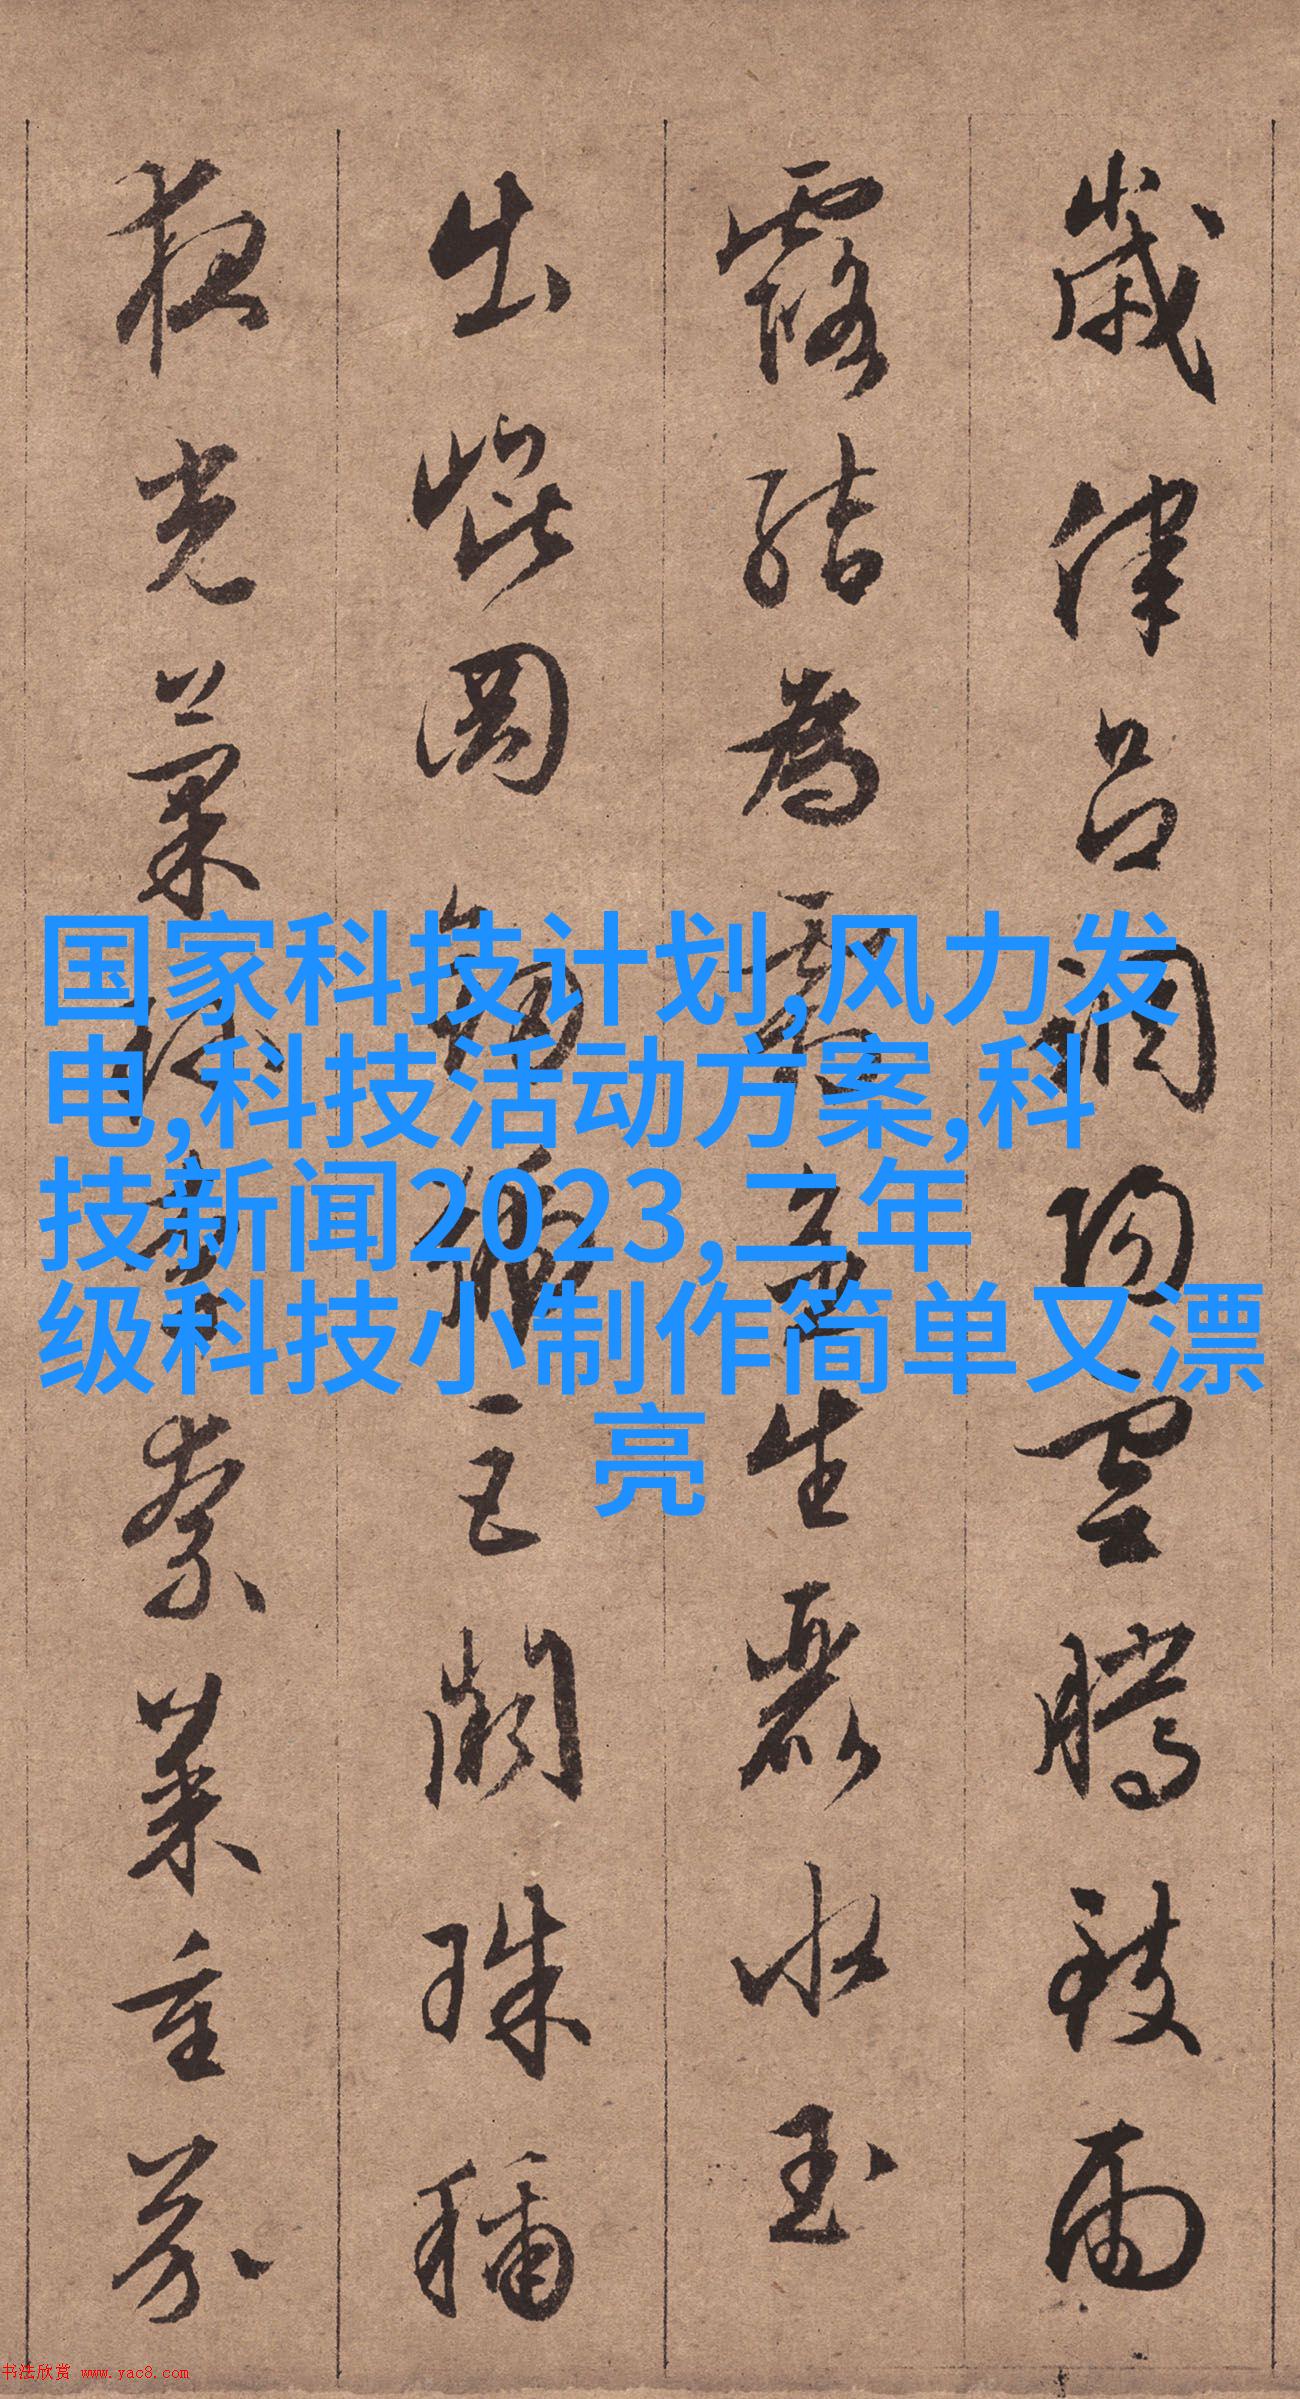 歲律呂調陽雲騰致雨
露結為霜金生麗水玉
出崐岡劍號巨闕珠稱
夜光菓珍李柰菜重芥
国家科技计划,风力发
电,科技活动方案,科
技新闻2023,二年
级科技小制作简单又漂
亮
书法欣赏 www.yac8.com